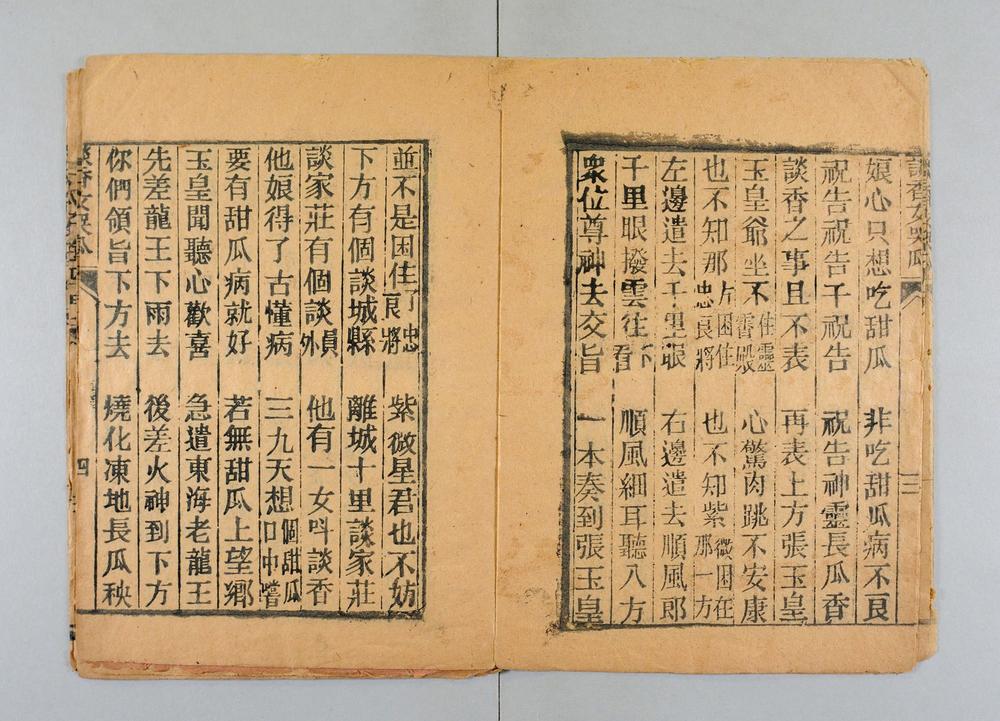 談香女哭瓜 三
娘心只想吃甜瓜 非吃甜瓜病不艮
祝告祝告千祝告 祝告神靈長瓜香
談香之事且不表 再表上方張玉皇
玉皇爺坐不住靈霄毀 心驚肉跳不安康
也不知那方困住忠良將 也不知紫微困在那一方
左邊遣去千里眼 右邊遣去順風郎
千里眼撥雲往下看 順風細耳聽八方
衆位尊神去交旨 一本奏到張玉皇
並不是困住了忠良將 紫微星君也不妨
下方有個談城縣 離城十里談家莊
談家莊有個談員外 他有一女呌談香
他娘得了古懂病 三九天想個甜瓜口中嘗
要有甜瓜病就好 若無甜瓜上望鄉
玉皇聞聽心歡喜 急遣東海老龍王
先差龍王下雨去 後差火神到下方
你們領旨下方去 燒化凍地長瓜秧
談香女哭瓜 四